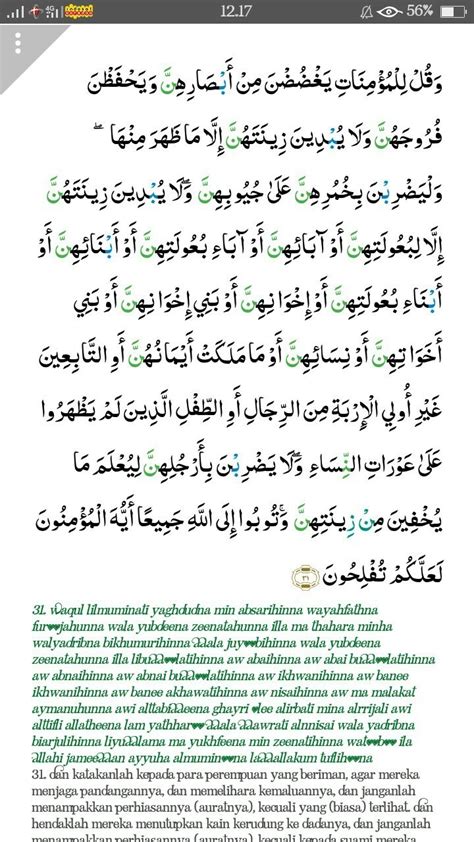 4G 12.17 56%
وَقُلْ لِلْمُؤْمِنَاتِ يَغْضُضْنَ مِنْ أَبْصَارِهِنَّ وَيَحْفَظْنَ
فُرُوجَهُنَّ وَلَا يُبْدِينَ زِينَتَهُنَّ إِلَّا مَا ظَهَرَ مِنْهَا ۖ
وَلْيَضْرِبْنَ بِخُمُرِهِنَّ عَلَىٰ جُيُوبِهِنَّ ۖ وَلَا يُبْدِينَ زِينَتَهُنَّ
إِلَّا لِبُعُولَتِهِنَّ أَوْ آبَائِهِنَّ أَوْ آبَاءِ بُعُولَتِهِنَّ أَوْ أَبْنَائِهِنَّ أَوْ
أَبْنَاءِ بُعُولَتِهِنَّ أَوْ إِخْوَانِهِنَّ أَوْ بَنِي إِخْوَانِهِنَّ أَوْ بَنِي
أَخَوَاتِهِنَّ أَوْ نِسَائِهِنَّ أَوْ مَا مَلَكَتْ أَيْمَانُهُنَّ أَوِ التَّابِعِينَ
غَيْرِ أُولِي الْإِرْبَةِ مِنَ الرِّجَالِ أَوِ الطِّفْلِ الَّذِينَ لَمْ يَظْهَرُوا
عَلَىٰ عَوْرَاتِ النِّسَاءِ ۖ وَلَا يَضْرِبْنَ بِأَرْجُلِهِنَّ لِيُعْلَمَ مَا
يُخْفِينَ مِنْ زِينَتِهِنَّ ۚ وَتُوبُوا إِلَى اللَّهِ جَمِيعًا أَيُّهَ الْمُؤْمِنُونَ
لَعَلَّكُمْ تُفْلِحُونَ ٣١
31. Waqul lilmuminati yaghdudna min absarihinna wayahfathna
fur♥♥jahunna wala yubdeena zeenatahunna illa ma thahara minha
walyadribna bikhumurihinna juy♥♥bihinna wala yubdeena
zeenatahunna illa aw abaihinna aw abai
aw abnaihinna aw abnai aw ikhwanihinna aw banee
ikhwanihinna aw banee akhawatihinna aw nisaihinna aw ma malakat
aymanuhunna awi ghayri alirbati mina alrrijali awi
alttifli allatheena lam alnnisai wala yadribna
biarjulihinna ma yukhfeena min zeenatihinna wat♥♥b♥♥ ila
Allahi jameeAAan ayyuha almumin♥♥na tuflih♥♥na
31. dan katakanlah kepada para perempuan yang beriman, agar mereka
menjaga pandangannya, dan memelihara kemaluannya, dan janganlah
menampakkan perhiasannya (auratnya), kecuali yang (biasa) terlihat. dan
hendaklah mereka menutupkan kain kerudung ke dadanya, dan janganlah
menampakkan perhiasannya (auratnya), kecuali kepada suami mereka